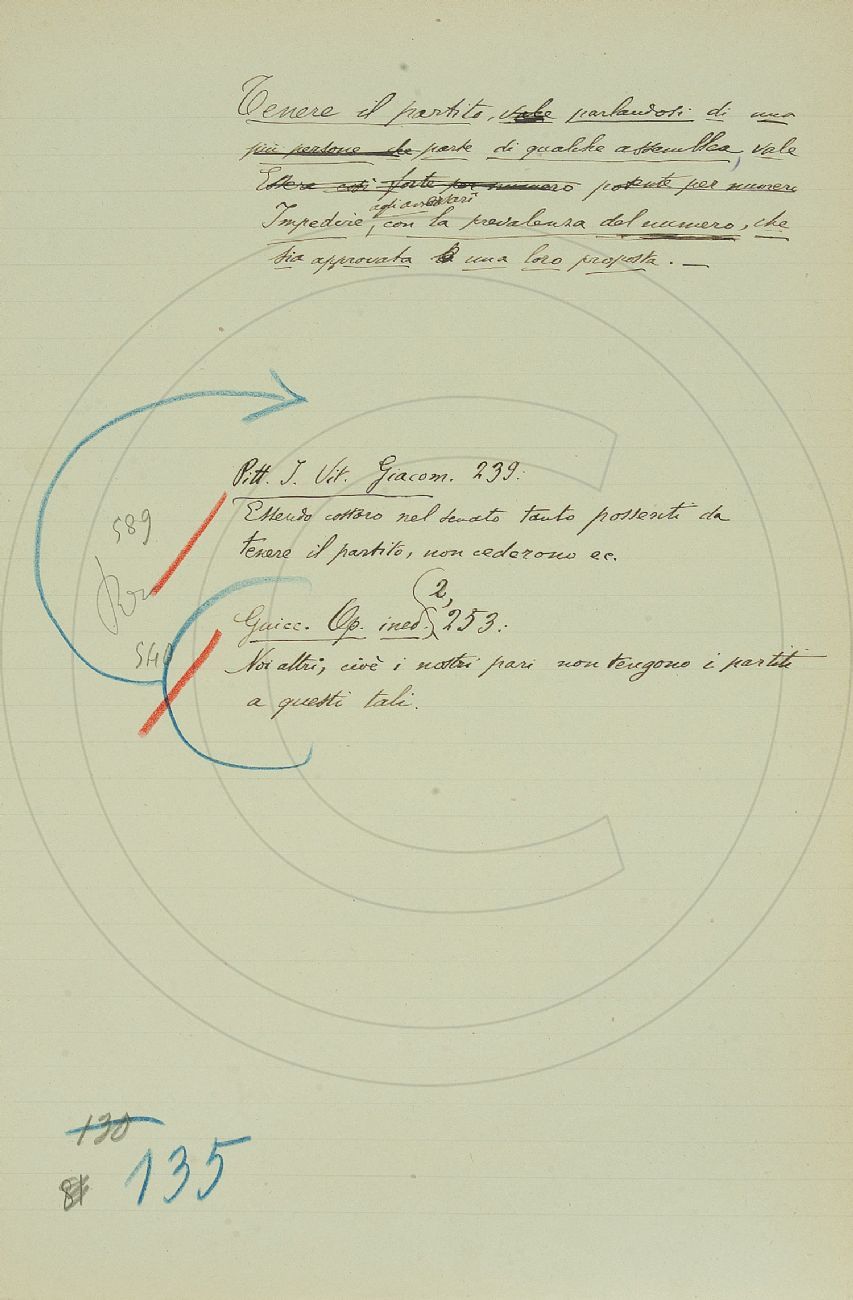 Tenere il partito, vale parlandosi di una
più persone che parte di qualche assemblea, vale
Essere così forte per numero potente per numero
agli avversari
Impedire, con la prevalenza del numero, che
sia approvata una loro proposta. —
Pitt. J. Vit. Giacom. 239:
Essendo costoro nel senato tanto possenti da
589
tenere il partito, non cederono ec.
2,
Guicc. Op. ined. 253:
540
Noi altri, cioè i nostri pari non tengono i partiti
a questi tali.
130
135
81